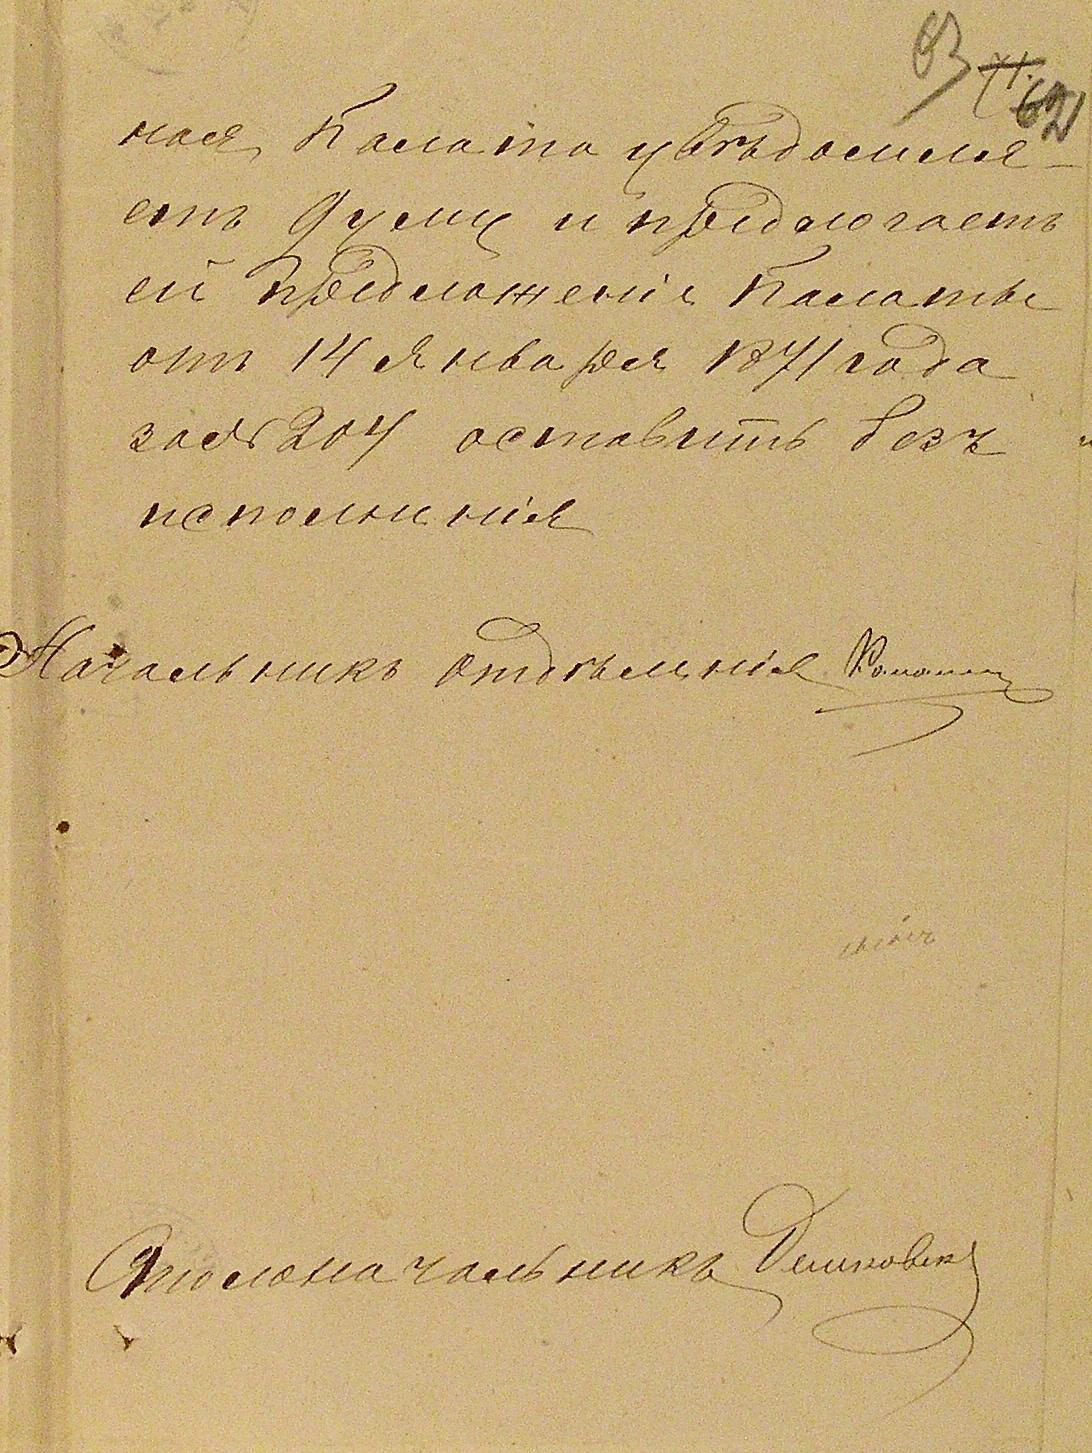 63 71. 62
ная Палата увѣдомля-
етъ Думу и предлогаетъ
ей предложеніе Палаты
отъ 14 Января 1871 года
за № 204 оставить безъ
исполненія
Начальникъ Отдѣленія
Столоначальникъ